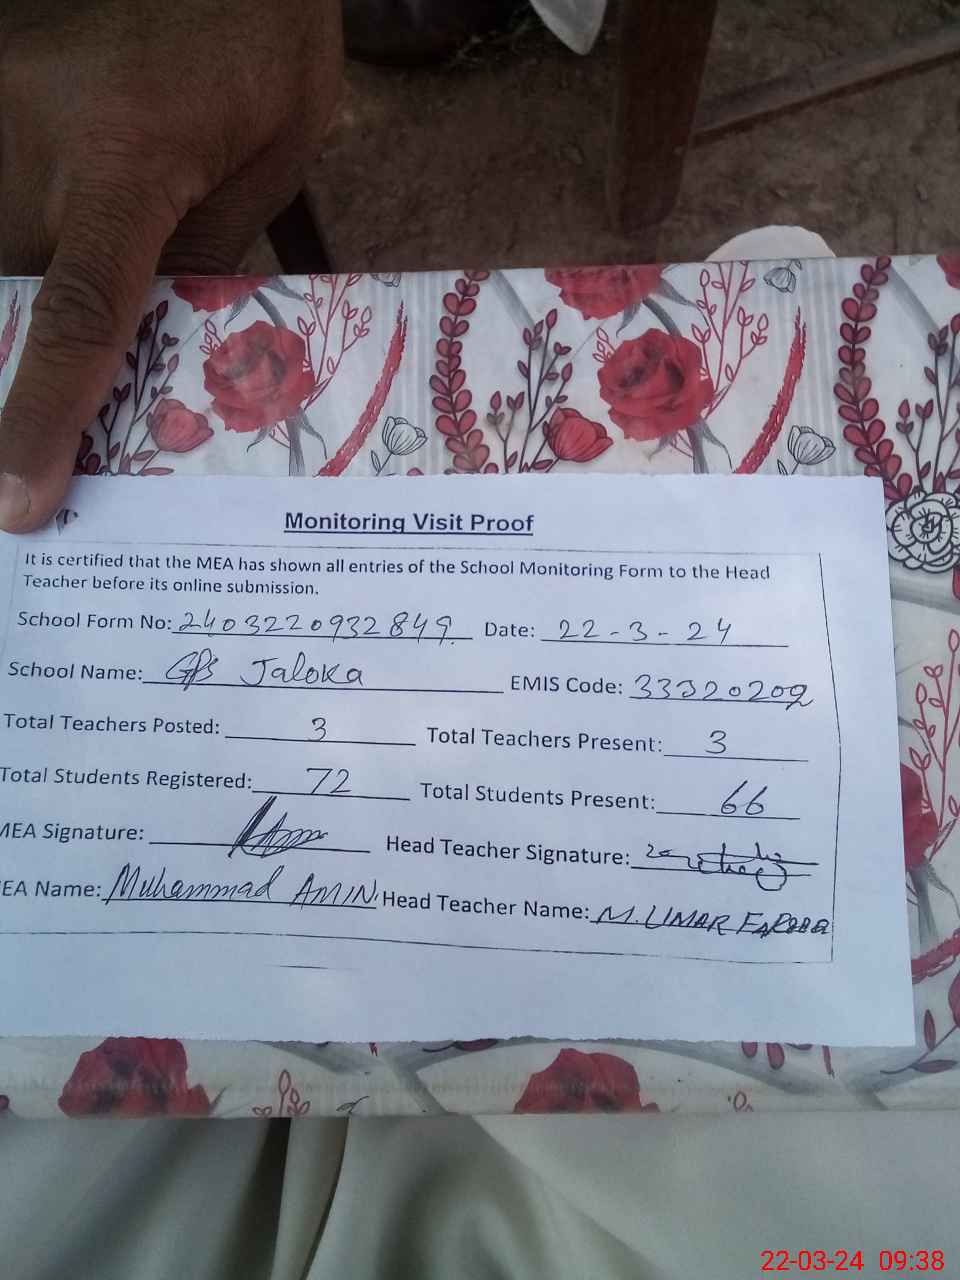 Monitoring Visit Proof
It is certified that the MEA has shown all entries of the School Monitoring Form to the Head
Teacher before its online submission.
School Form No: 2403220932849 Date: 22-3-24
School Name: GPS Jaloka EMIS Code: 33320202
Total Teachers Posted: 3 Total Teachers Present: 3
Total Students Registered: 72 Total Students Present: 66
MEA Signature: Head Teacher Signature:
EA Name: Muhammad AMIN Head Teacher Name: M. UMAR FAROOQ
22-03-24 09:38